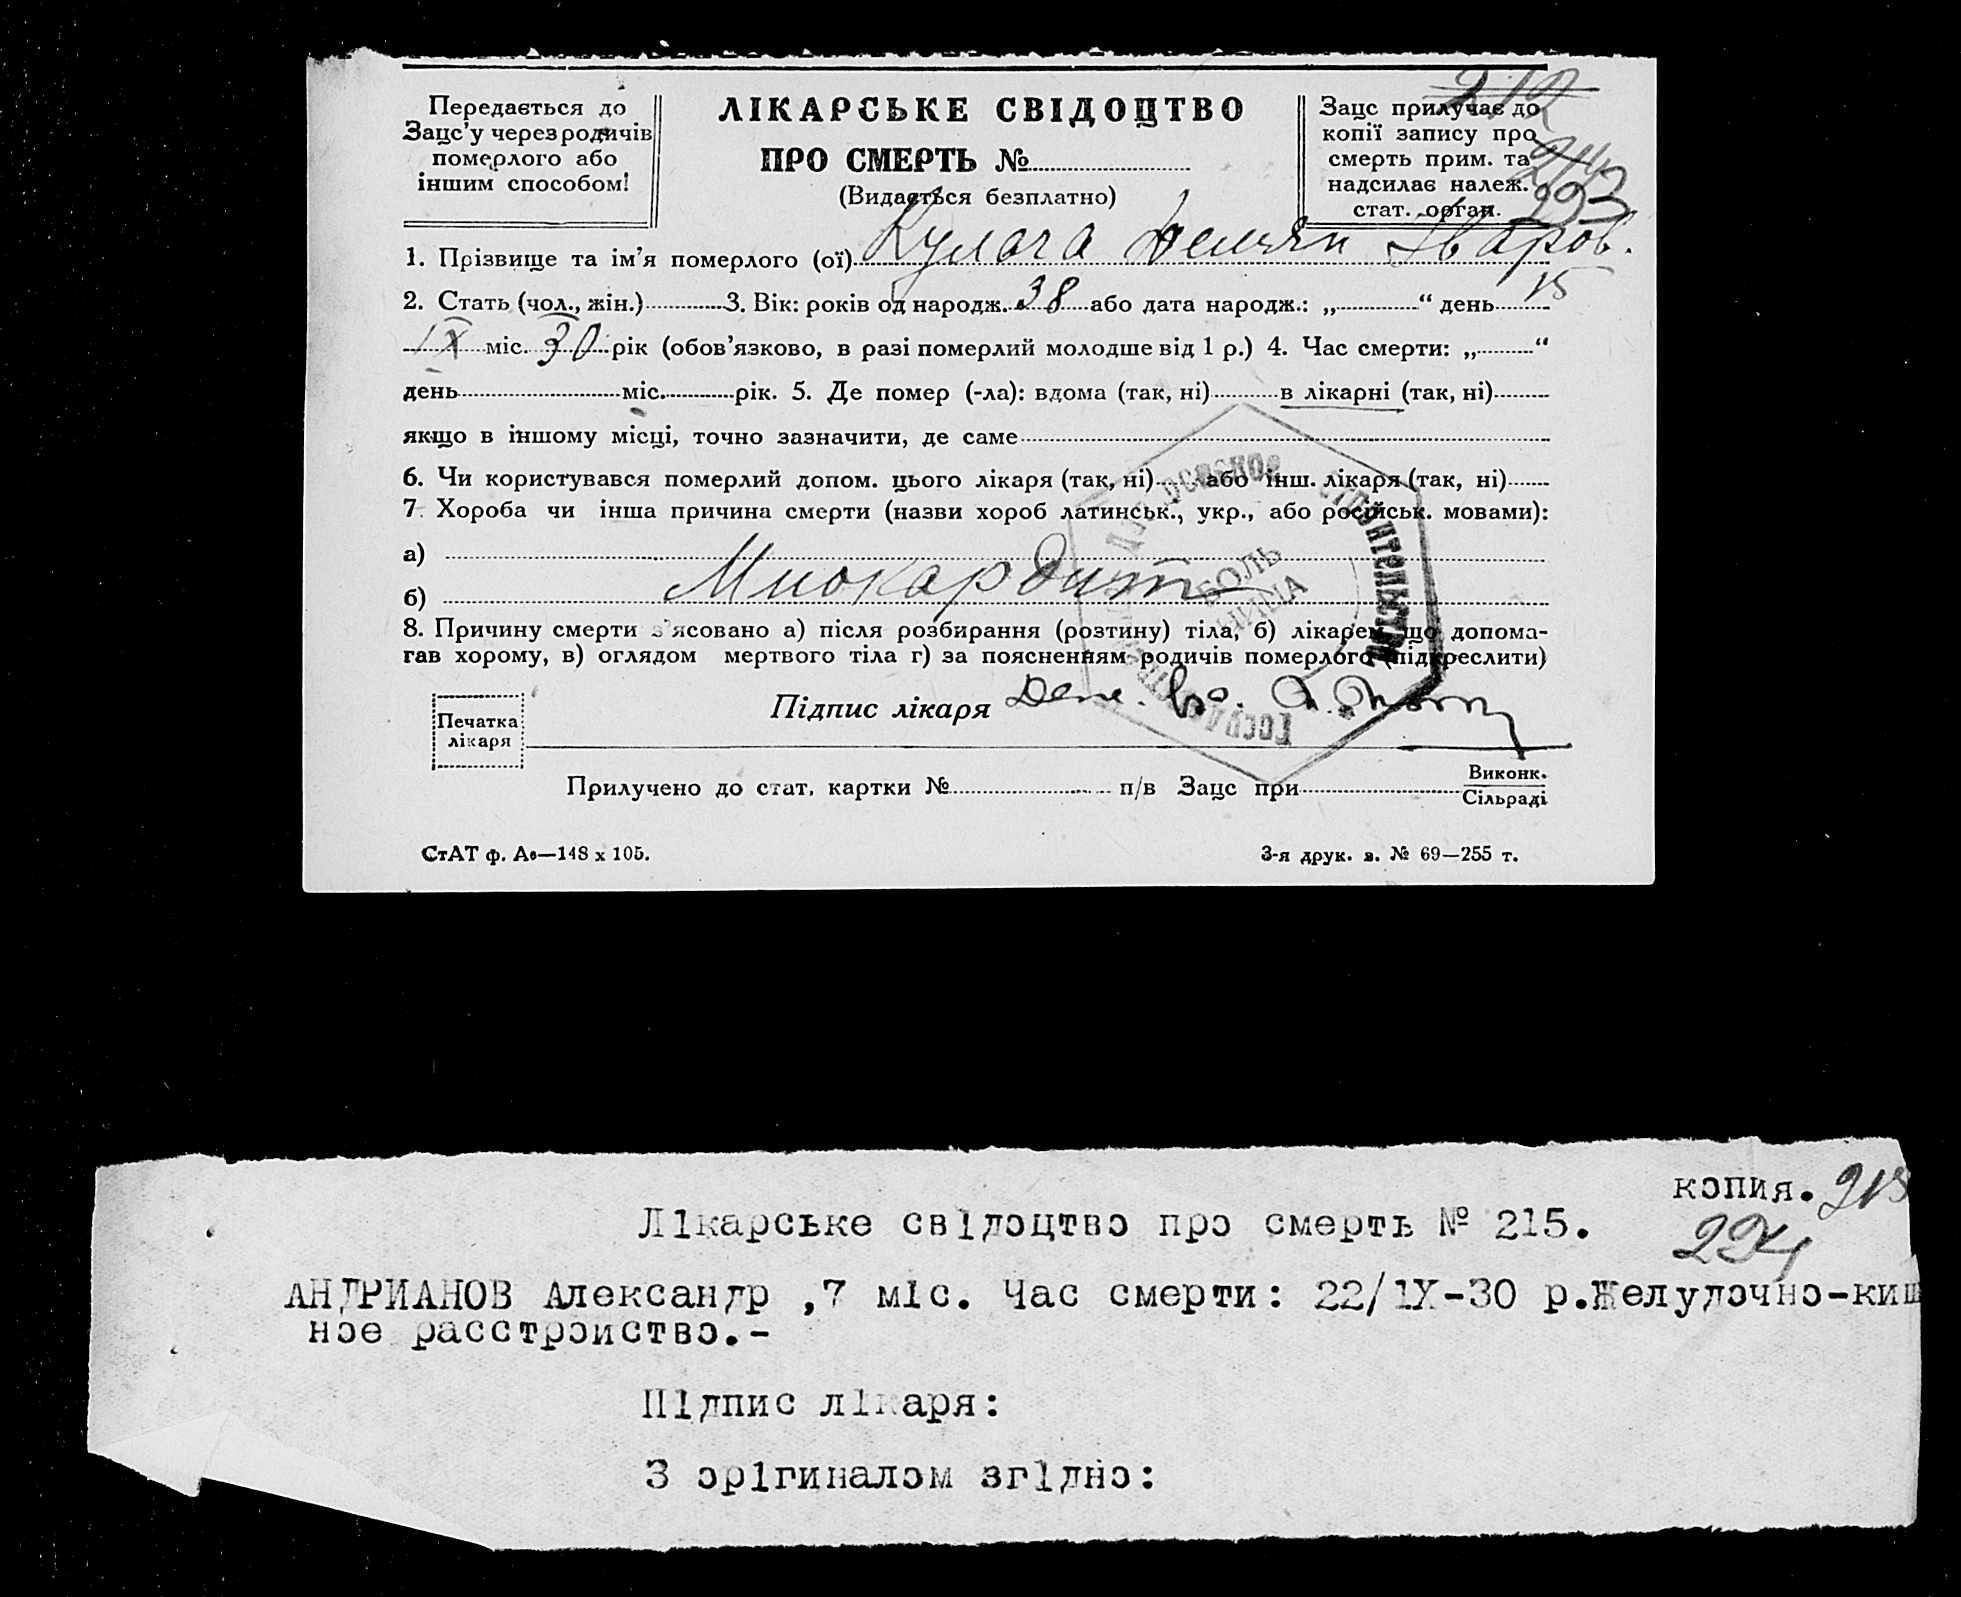 Передається до
Зацс'у через родичів
померлого або
іншим способом!
ЛІКАРСЬКЕ СВІДОЦТВО
ПРО СМЕРТЬ №
(Видається безплатно)
Зацс прилучає до
копії запису про
смерть прим. та
надсилає належ.
стат. орган.
212
214
223
1. Прізвище та ім'я померлого (ої) Кулага Демян
2. Стать (чол., жін.) 3. Вік: років од народж. 38 або дата народж.: „ “ день 15
IX міс. 30 рік (обов'язково, в разі померлий молодше від 1 р.) 4. Час смерти: „ “
день міс. рік. 5. Де помер (-ла): вдома (так, ні) в лікарні (так, ні)
якщо в іншому місці, точно зазначити, де саме
6. Чи користувався померлий допом. цього лікаря (так, ні) або інш. лікаря (так, ні)
7. Хороба чи інша причина смерти (назви хороб латинськ., укр., або російськ. мовами):
а)
б) Миокардит
8. Причину смерти з'ясовано а) після розбирання (розтину) тіла, б) лікарем, що допома-
гав хорому, в) оглядом мертвого тіла г) за поясненням родичів померлого (підкреслити)
БОЛЬ
НИЦА
Печатка
лікаря
Підпис лікаря
Прилучено до стат. картки № п/в Зацс при Виконк.
Сільраді
СтАТ ф. Ав—148 х 105.
3-я друк. з. № 69—255 т.
копия. 215
224
Лікарське свідоцтво про смерть № 215.
АНДРИАНОВ Александр ,7 міс. Час смерти: 22/1Х-30 р.Желудочно-киш
ное расстроиство.-
Підпис лікаря:
З орігиналом згідно: